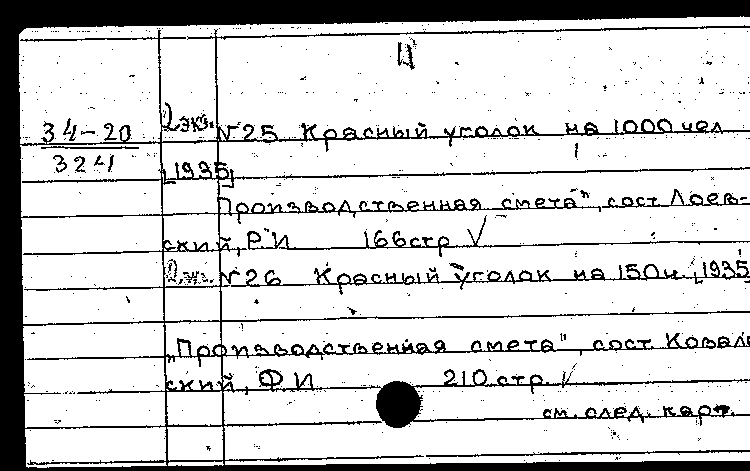 Д
34-20 2 экз. №25 Красный уголок на 1000 чел
324 [1935]
Производственная смета", сост Лоев-
ский, Р.И 166 стр V
2 экз. №26 Красный уголок на 150 ч. [1935
"Производственная смета", сост. Коваль
ский, Ф.И 210 стр. V
см. след. карт.